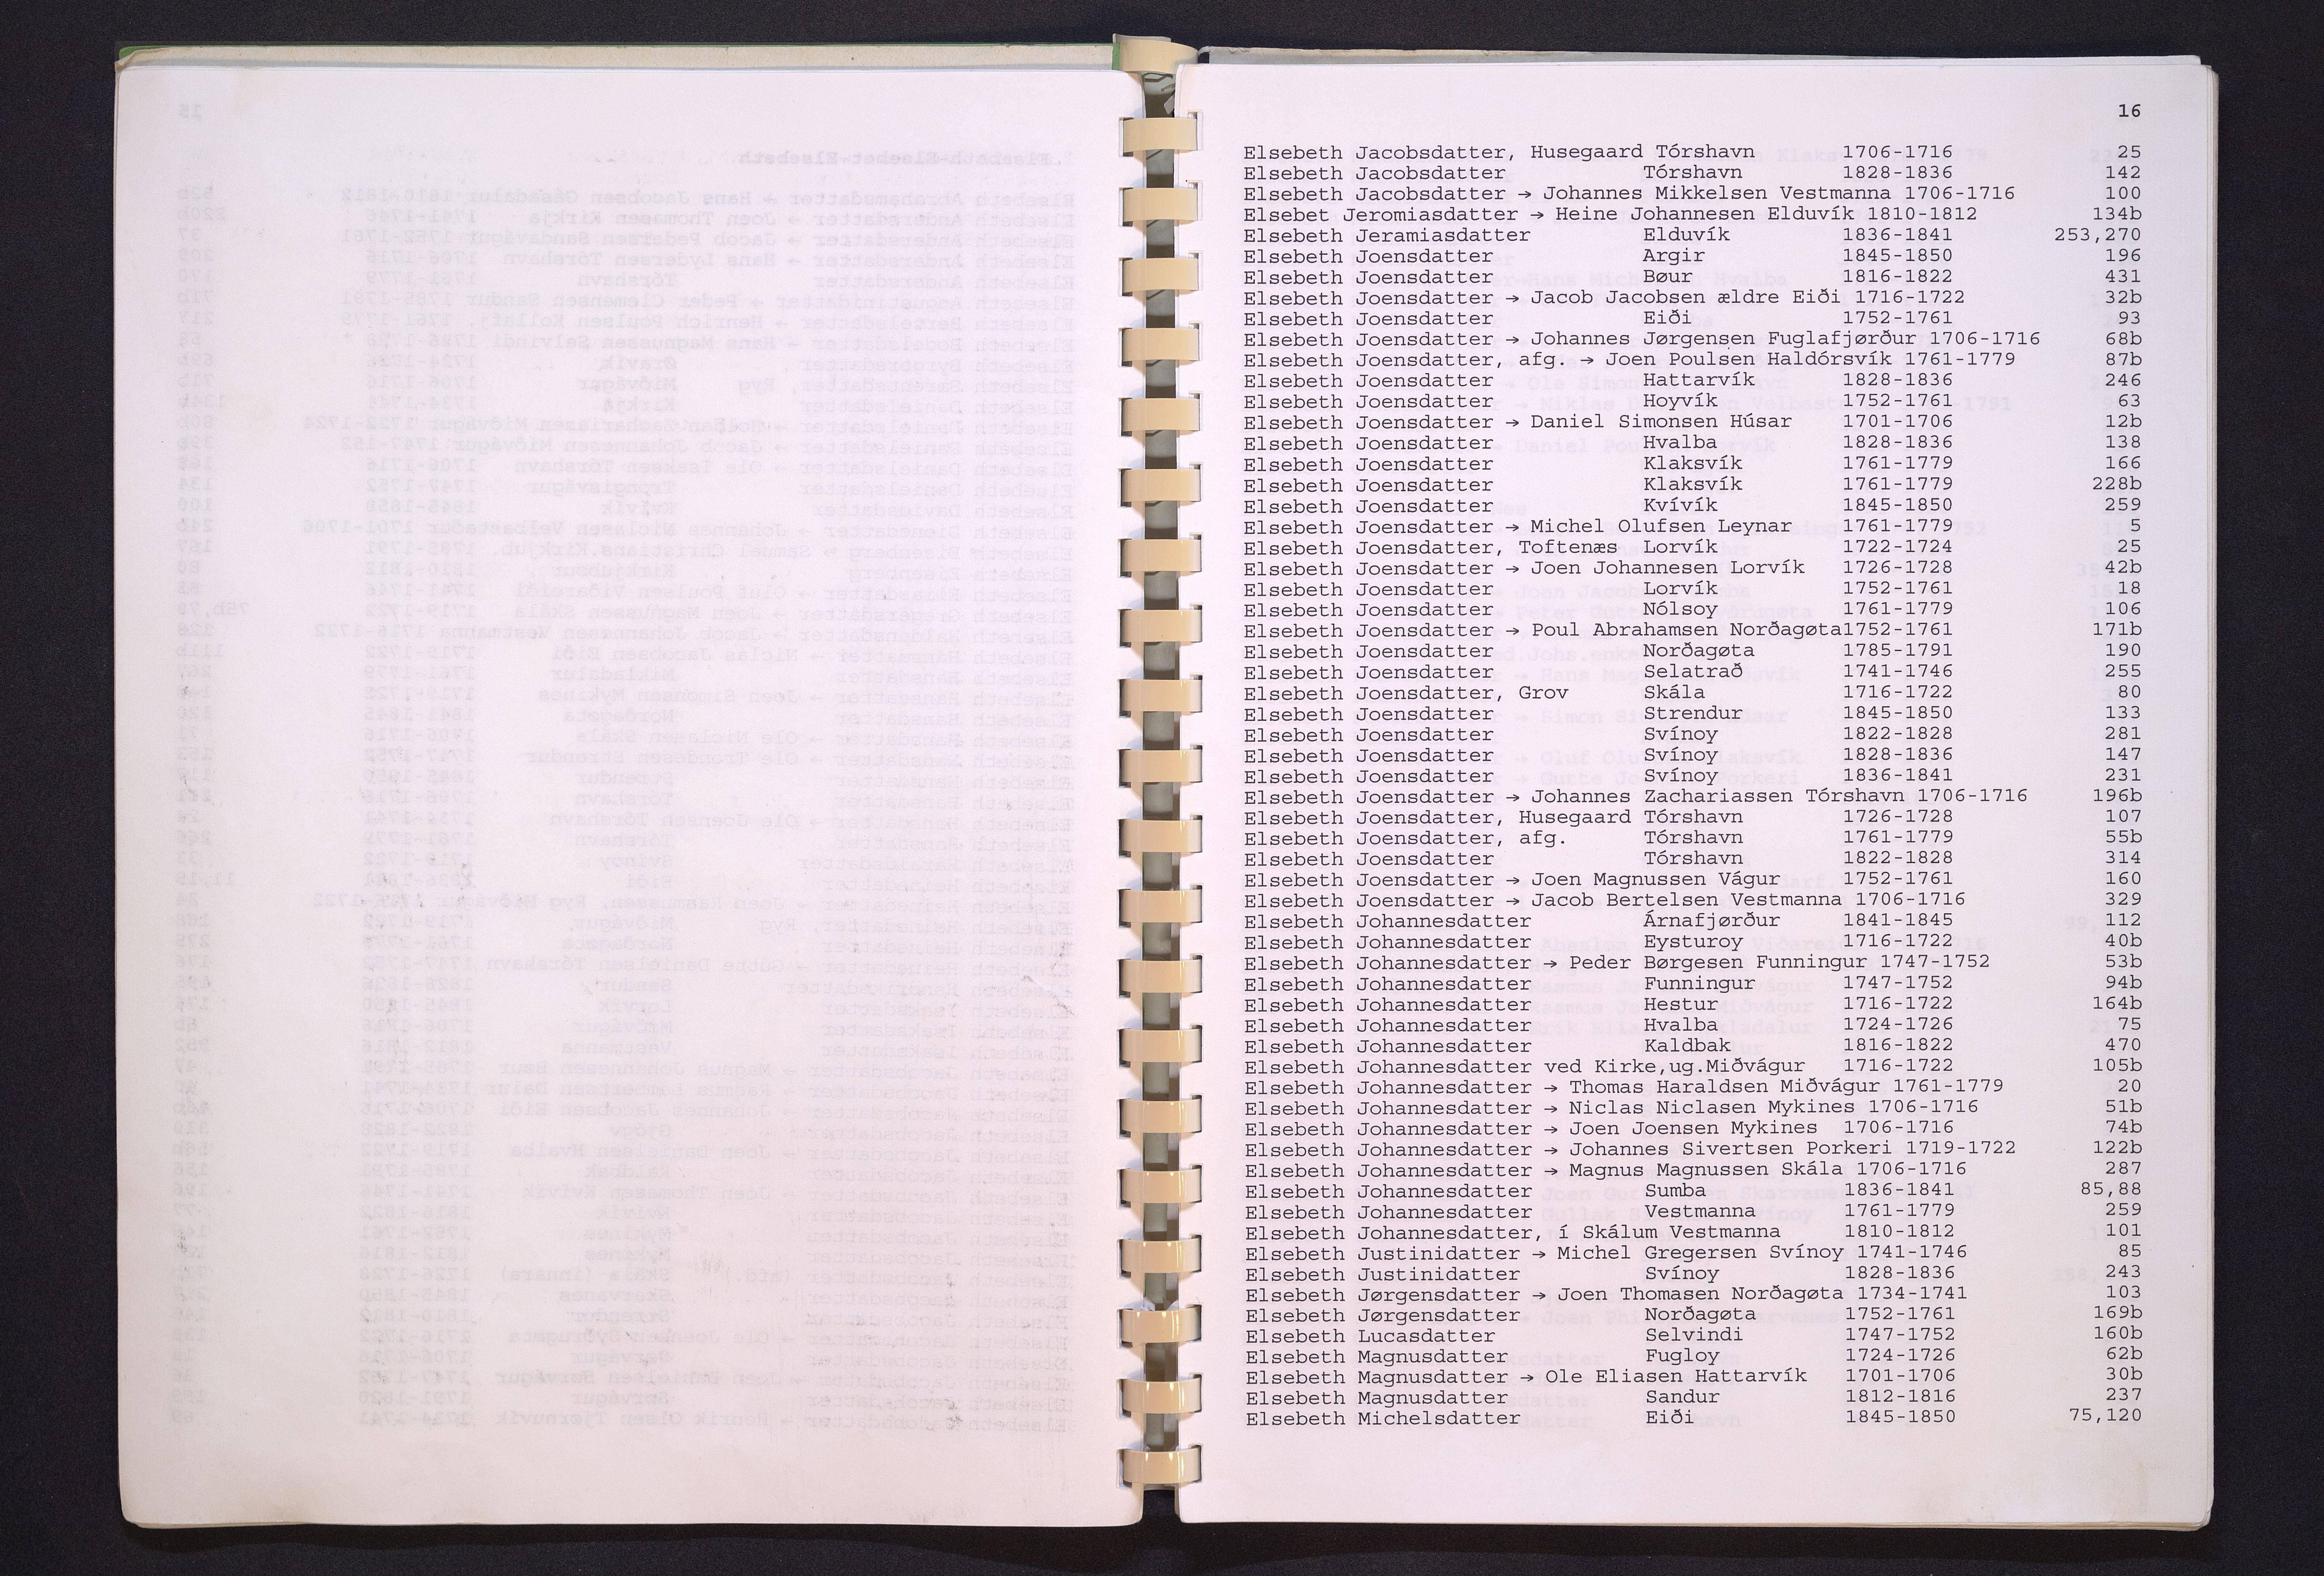 16
Elsebeth Jacobsdatter, Husegaard Tórshavn 1706-1716 25
Elsebeth Jacobsdatter Tórshavn 1828-1836 142
Elsebeth Jacobsdatter → Johannes Mikkelsen Vestmanna 1706-1716 100
Elsebet Jeromiasdatter → Heine Johannesen Elduvík 1810-1812 134b
Elsebeth Jeramiasdatter Elduvík 1836-1841 253,270
Elsebeth Joensdatter Argir 1845-1850 196
Elsebeth Joensdatter Bøur 1816-1822 431
Elsebeth Joensdatter → Jacob Jacobsen ældre Eiði 1716-1722 32b
Elsebeth Joensdatter Eiði 1752-1761 93
Elsebeth Joensdatter → Johannes Jørgensen Fuglafjørður 1706-1716 68b
Elsebeth Joensdatter, afg. → Joen Poulsen Haldórsvík 1761-1779 87b
Elsebeth Joensdatter Hattarvík 1828-1836 246
Elsebeth Joensdatter Hoyvík 1752-1761 63
Elsebeth Joensdatter → Daniel Simonsen Húsar 1701-1706 12b
Elsebeth Joensdatter Hvalba 1828-1836 138
Elsebeth Joensdatter Klaksvík 1761-1779 166
Elsebeth Joensdatter Klaksvík 1761-1779 228b
Elsebeth Joensdatter Kvívík 1845-1850 259
Elsebeth Joensdatter → Michel Olufsen Leynar 1761-1779 5
Elsebeth Joensdatter, Toftenæs Lorvík 1722-1724 25
Elsebeth Joensdatter → Joen Johannesen Lorvík 1726-1728 42b
Elsebeth Joensdatter Lorvík 1752-1761 18
Elsebeth Joensdatter Nólsoy 1761-1779 106
Elsebeth Joensdatter → Poul Abrahamsen Norðagøta1752-1761 171b
Elsebeth Joensdatter Norðagøta 1785-1791 190
Elsebeth Joensdatter Selatrað 1741-1746 255
Elsebeth Joensdatter, Grov Skála 1716-1722 80
Elsebeth Joensdatter Strendur 1845-1850 133
Elsebeth Joensdatter Svínoy 1822-1828 281
Elsebeth Joensdatter Svínoy 1828-1836 147
Elsebeth Joensdatter Svínoy 1836-1841 231
Elsebeth Joensdatter → Johannes Zachariassen Tórshavn 1706-1716 196b
Elsebeth Joensdatter, Husegaard Tórshavn 1726-1728 107
Elsebeth Joensdatter, afg. Tórshavn 1761-1779 55b
Elsebeth Joensdatter Tórshavn 1822-1828 314
Elsebeth Joensdatter → Joen Magnussen Vágur 1752-1761 160
Elsebeth Joensdatter → Jacob Bertelsen Vestmanna 1706-1716 329
Elsebeth Johannesdatter Árnafjørður 1841-1845 112
Elsebeth Johannesdatter Eysturoy 1716-1722 40b
Elsebeth Johannesdatter → Peder Børgesen Funningur 1747-1752 53b
Elsebeth Johannesdatter Funningur 1747-1752 94b
Elsebeth Johannesdatter Hestur 1716-1722 164b
Elsebeth Johannesdatter Hvalba 1724-1726 75
Elsebeth Johannesdatter Kaldbak 1816-1822 470
Elsebeth Johannesdatter ved Kirke,ug.Miðvágur 1716-1722 105b
Elsebeth Johannesdatter → Thomas Haraldsen Miðvágur 1761-1779 20
Elsebeth Johannesdatter → Niclas Niclasen Mykines 1706-1716 51b
Elsebeth Johannesdatter → Joen Joensen Mykines 1706-1716 74b
Elsebeth Johannesdatter → Johannes Sivertsen Porkeri 1719-1722 122b
Elsebeth Johannesdatter → Magnus Magnussen Skála 1706-1716 287
Elsebeth Johannesdatter Sumba 1836-1841 85,88
Elsebeth Johannesdatter Vestmanna 1761-1779 259
Elsebeth Johannesdatter, í Skálum Vestmanna 1810-1812 101
Elsebeth Justinidatter → Michel Gregersen Svínoy 1741-1746 85
Elsebeth Justinidatter Svínoy 1828-1836 243
Elsebeth Jørgensdatter → Joen Thomasen Norðagøta 1734-1741 103
Elsebeth Jørgensdatter Norðagøta 1752-1761 169b
Elsebeth Lucasdatter Selvindi 1747-1752 160b
Elsebeth Magnusdatter Fugloy 1724-1726 62b
Elsebeth Magnusdatter → Ole Eliasen Hattarvík 1701-1706 30b
Elsebeth Magnusdatter Sandur 1812-1816 237
Elsebeth Michelsdatter Eiði 1845-1850 75,120